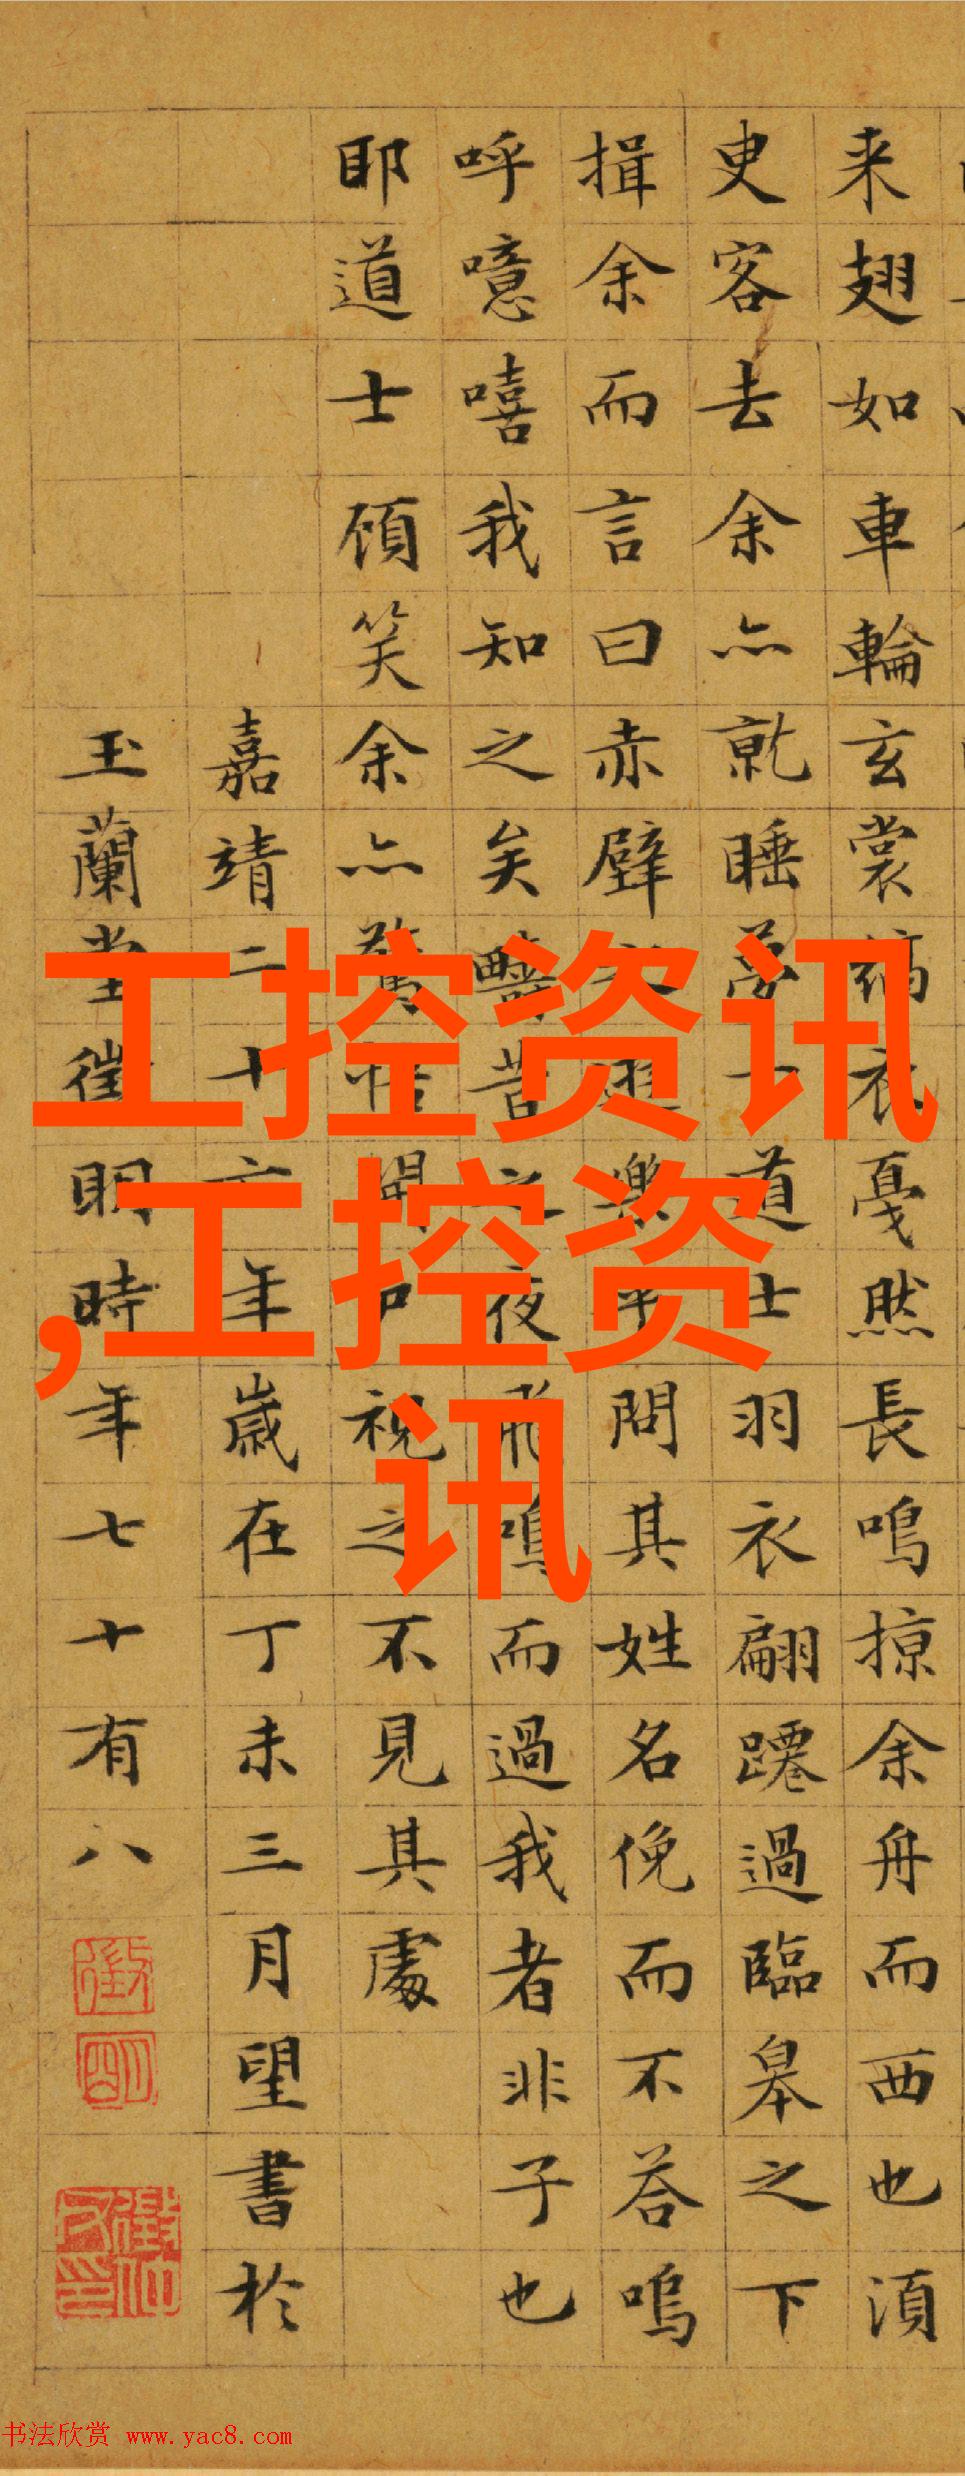 来翅如車輪玄裳縞衣戛然長鳴掠余舟而西也湏
臾客去余亦就睡夢一道士羽衣翩躚過臨皋之下
揖余而言曰赤壁之遊樂乎問其姓名俛而不荅嗚
呼噫嘻我知之矣疇昔之夜飛鳴而過我者非子也
耶道士顧笑余亦驚悟開戶視之不見其處
嘉靖二十六年歲在丁未三月望書於
玉蘭堂徵明時年七十有八
徵
明
工控资讯
,工控资
讯
书法欣赏 www.yac8.com